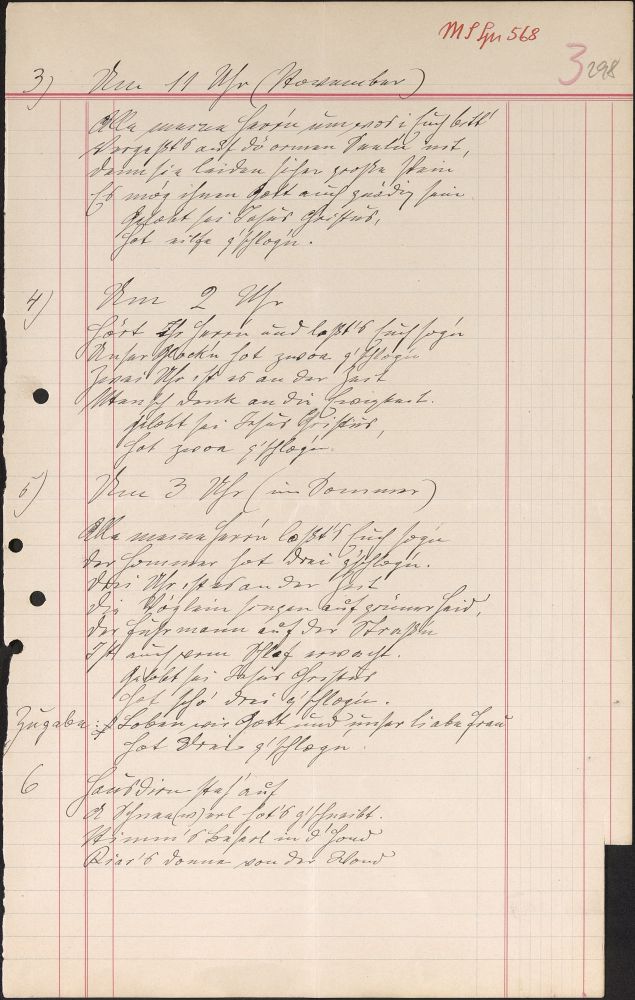 MS Lpn 568
3 298
3) Um 11 Uhr (November)
Alle meine Herrn um wos i Euch bitt'
Vergeßt's auf di ormen Seeln nit,
denn sie leiden große Pein
Es mög ihnen Gott auch gnädig sein
Gelobt sei Jesus Christus,
Hot eilfe g'schlog'n.
4) Um 2 Uhr
Hört Ihr Herrn und loßt's Euch sog'n
Unser Glock'n hot zwoa g'schlogn
Zwei Uhr ist es an der Zeit
Mensch denk an die Ewigkeit.
Gelobt sei Jesus Christus,
Hot zwoa g'schlogn.
5) Um 3 Uhr (im Sommer)
Alle meine Herrn loßt's Euch sogn
Der Hommer hot drei g'schlogn.
Drei Uhr ist es an der Zeit
Die Vöglein singen auf grüner Heid,
Der Fuhrmann auf der Straßn
Ist auch vom Schlof erwocht.
Gelobt sei Jesus Christus
Hot scho' drei g'schlogn.
Zugabe: Loben wir Gott und unser liabe Frau
Hot Drei g'schlogn.
6 Hausdirn steh' auf
A Schnee(w)erl hot's g'schneibt.
Nimm's Beserl in d' Hond
Kiar's donna von der Wond